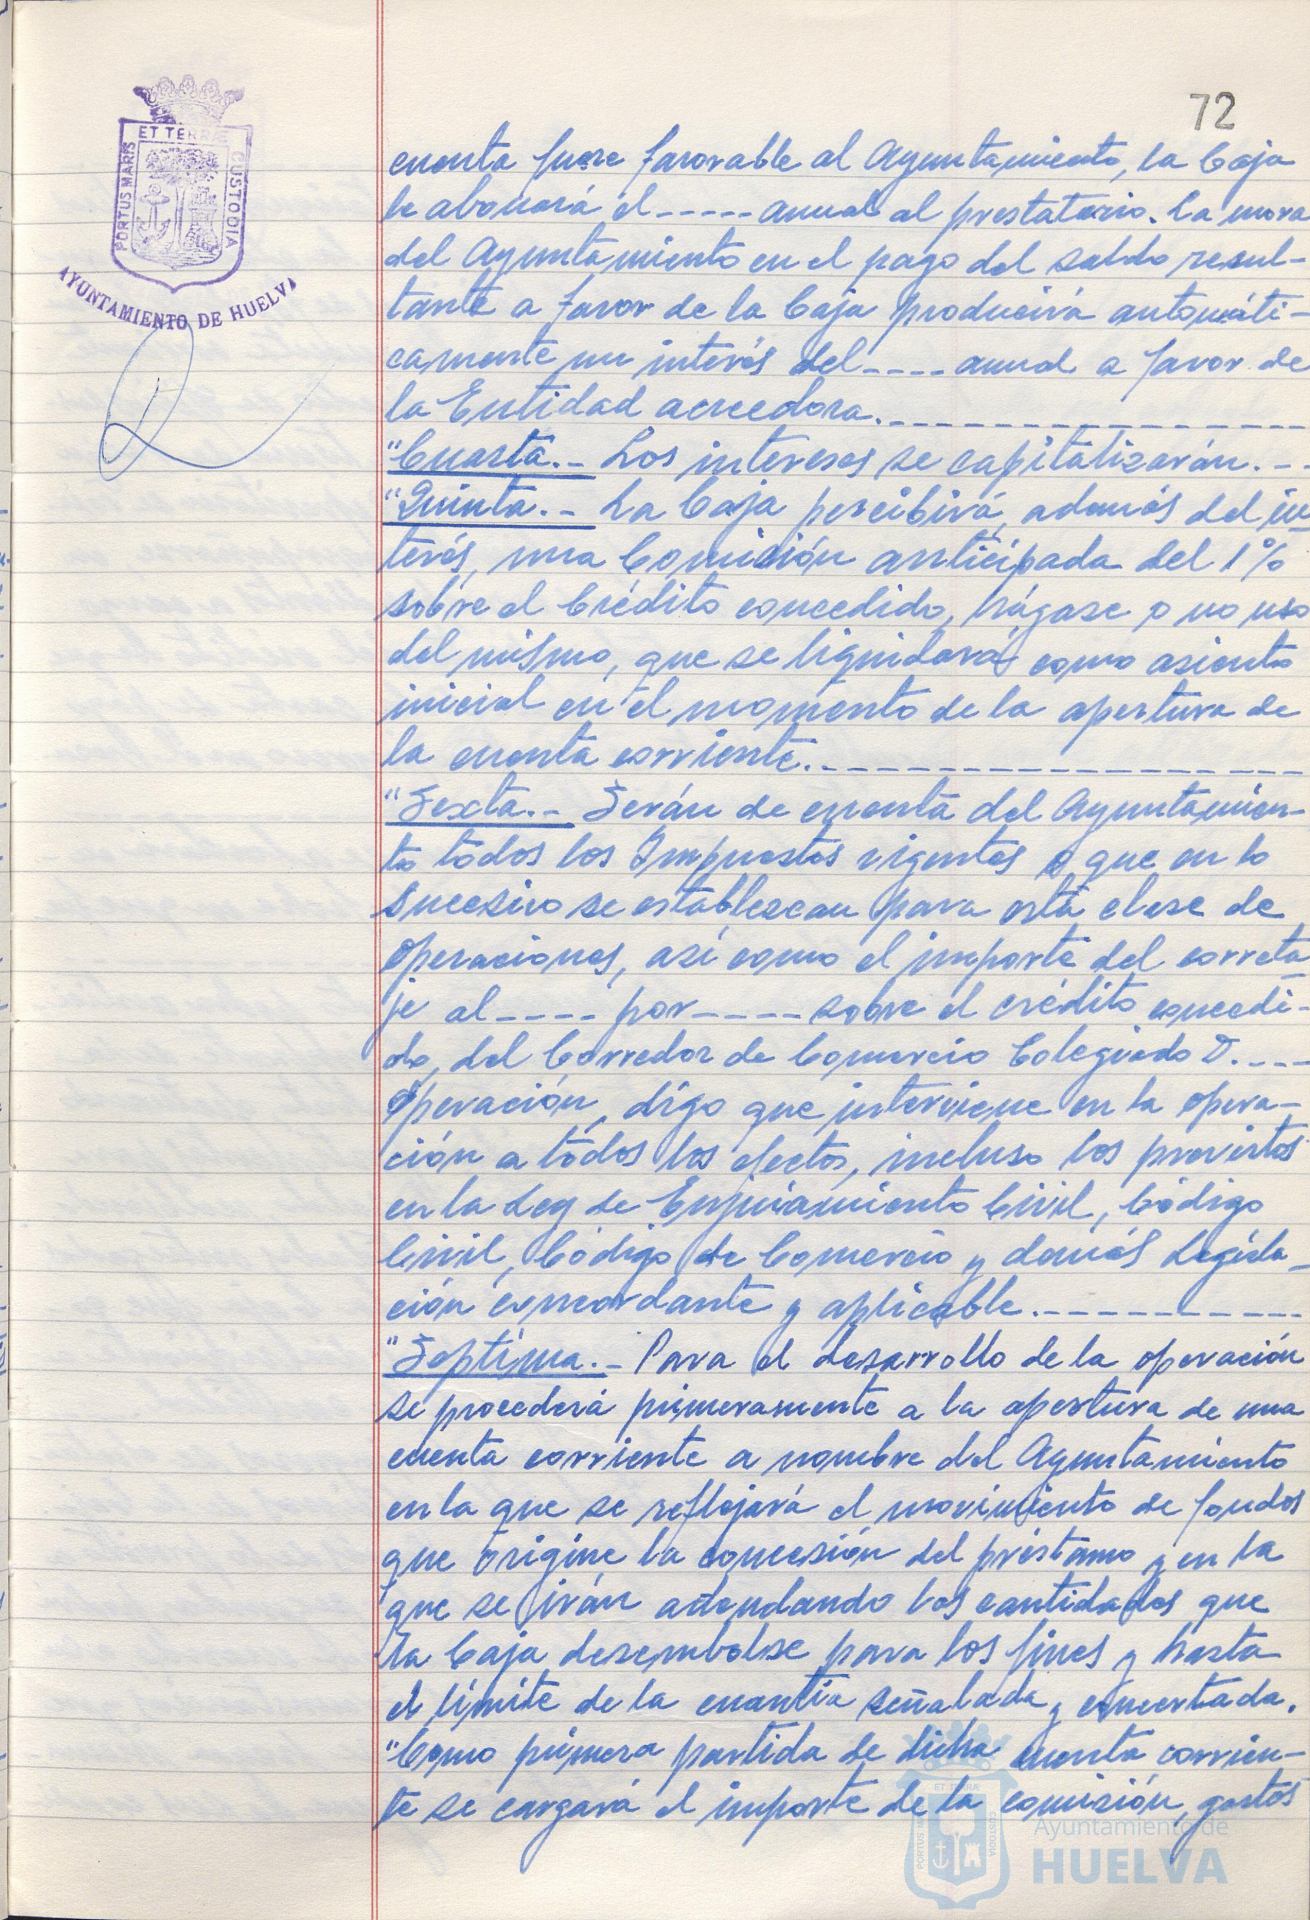 72
ET TERRÆ
PORTUS MARIS
CUSTODIA
AYUNTAMIENTO DE HUELVA
cuenta fuere favorable al Ayuntamiento, la Caja
le abonará el ----- anual al prestatario. La mora
del Ayuntamiento en el pago del saldo resul-
tante a favor de la Caja producirá automáti-
camente un interés del ---- anual a favor de
la Entidad acreedora.
"Cuarta.- Los intereses se capitalizarán.--
"Quinta.- La Caja percibirá, además del in
terés, una Comisión anticipada del 1%
sobre el Crédito concedido, hágase o no uso
del mismo, que se liquidará como asiento
inicial en el momento de la apertura de
la cuenta corriente.
"Sexta.- Serán de cuenta del Ayuntamien-
to todos los Impuestos vigentes o que en lo
sucesivo se establezcan para esta clase de
operaciones, así como el importe del correta
je al ---- por ----- sobre el crédito concedi-
do, del Corredor de Comercio Colegiado D. ----
Operación, digo que interviene en la opera-
ción a todos los efectos, incluso los previstos
en la Ley de Enjuiciamiento Civil, Código
Civil, Código de Comercio y demás Legisla-
ción concordante y aplicable.
"Septima.- Para el desarrollo de la operación
se procederá primeramente a la apertura de una
cuenta corriente a nombre del Ayuntamiento
en la que se reflejará el movimiento de fondos
que origine la concesión del préstamo y en la
que se irán adeudando las cantidades que
la Caja desembolse para los fines y hasta
el límite de la cuantía señalada y concertada.
"Como primera partida de dicha cuenta corrien-
te se cargará el importe de la comisión, gastos
Ayuntamiento de
HUELVA